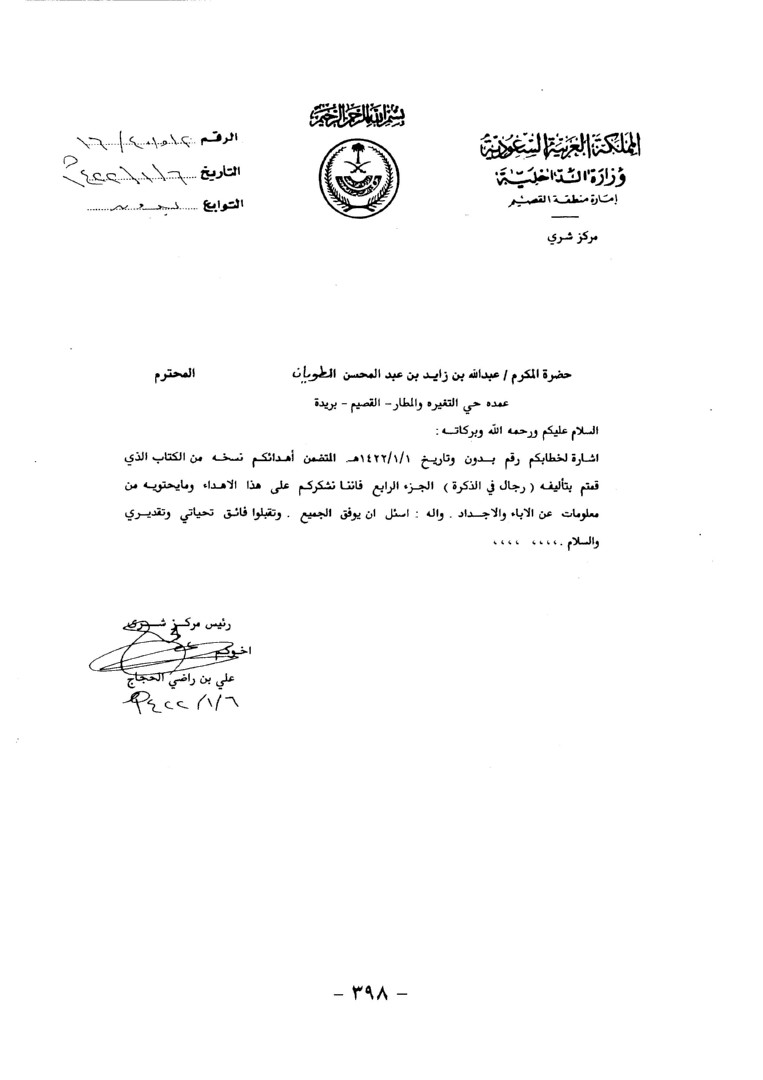 بسم الله الرحمن الرحيم
المملكة العربية السعودية
وزارة الداخلية
إمارة منطقة القصيم
مركز شري
الرقم
التاريخ ١٤٢٢/١/٦هـ
التوابع بدون
حضرة المكرم / عبدالله بن زايد بن عبد المحسن الطويان المحترم
عمده حي التغيره والمطار - القصيم - بريدة
السلام عليكم ورحمه الله وبركاته :
اشارة لخطابكم رقم بدون وتاريخ ١٤٢٢/١/١هـ المتضمن أهدائكم نسخه من الكتاب الذي
قمتم بتأليفه ( رجال في الذكرة ) الجزء الرابع فاننا نشكركم على هذا الاهداء ومايحتويه من
معلومات عن الاباء والاجداد . واله : اسئل ان يوفق الجميع . وتقبلوا فائق تحياتي وتقديري
والسلام .،،،، ،،،،
رئيس مركز شري
اخوكم
علي بن راضي الحجاج
١٤٢٢/١/٦هـ
- ٣٩٨ -